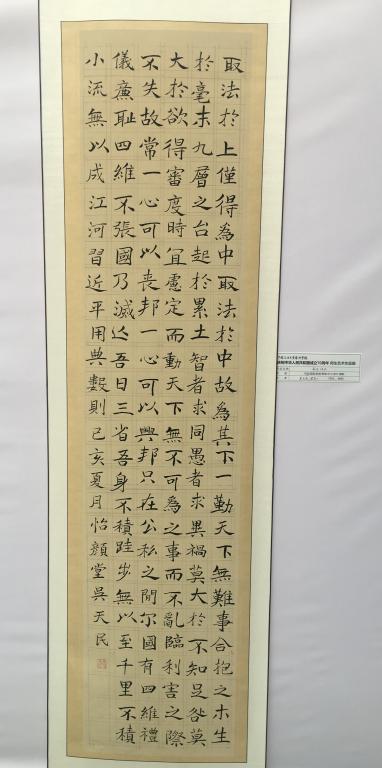 取法於上僅得為中取法於中故為其下一勤天下無難事合抱之木生
於毫末九層之台起於累土智者求同愚者求異禍莫大於不知足咎莫
大於欲得審度時宜慮定而動天下無不可為之事而不亂臨利害之際
不失故常一心可以喪邦一心可以興邦只在公私之間尔國有四維禮
儀廉耻四維不張國乃滅亾吾日三省吾身不積跬步無以至千里不積
小流無以成江河習近平用典數則己亥夏月怡顏堂吳天民
华人民共和国成立70周年